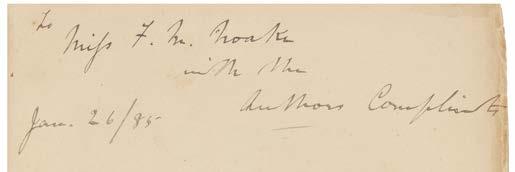 To
Miss F. M. Noake
with the
Authors Compliments
Jan. 26/85